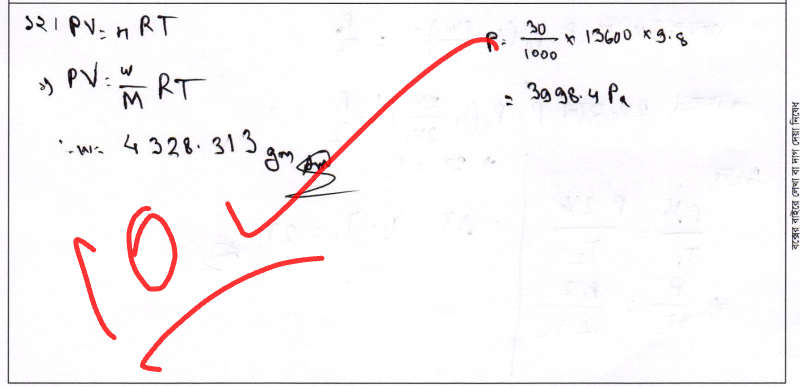 ১২। PV = nRT
⇒ PV = w/M RT
∴ w = 4328.313 gm Am
P = 30/1000 × 13600 × 9.8
= 3998.4 Pa
10
বক্সের বাইরে লেখা বা দাগ দেয়া নিষেধ